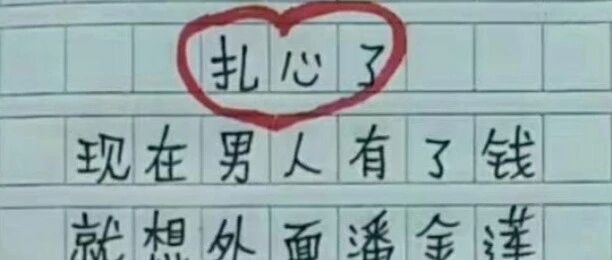 扎心了
现在男人有了钱
就想外面潘金莲